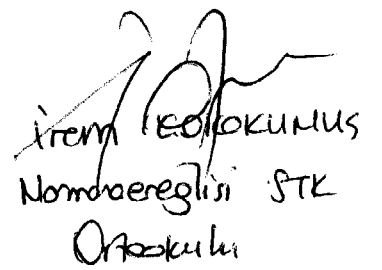 İrem KOLOKUMUS
Marmaraereglisi STK
Ortaokulu